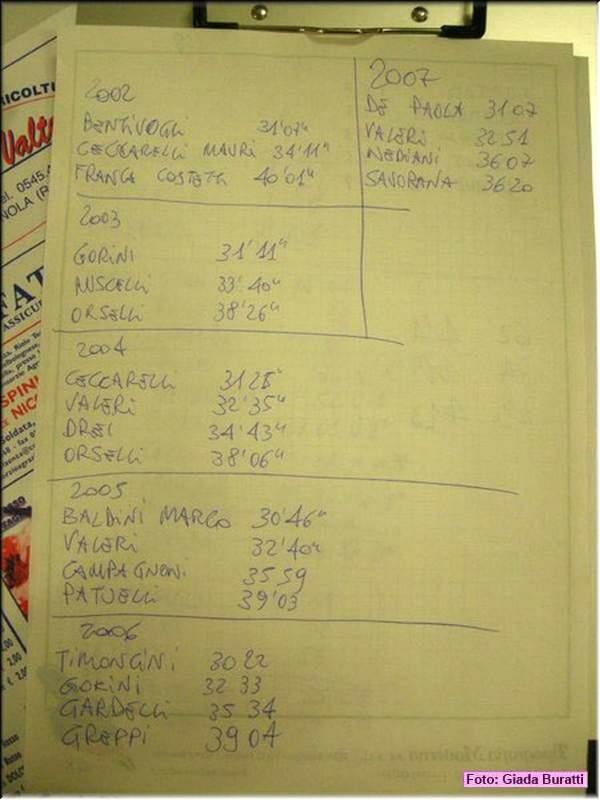 2002
BENTIVOGLI 31'07"
CECCARELLI MAURI 34'11"
FRANCA COSTETTI 40'01"
2003
GORINI 31'11"
MISCELLI 33'40"
ORSELLI 38'26"
2004
CECCARELLI 31 28"
VALERI 32'35"
DREI 34'43"
ORSELLI 38'06"
2005
BALDINI MARCO 30'46"
VALERI 32'40"
CAMPAGNONI 35 59
PATUELLI 39'03
2006
TIMONCINI 30 22
GORINI 32 33
GARDELLI 35 34
GREPPI 39 04
2007
DE PAOLA 31 07
VALERI 32 51
NEDIANI 36 07
SAVORANA 36 20
RICOLTI
Valt
el. 0545.4
NOLA (R
FAT
ASSICUR
SPINI
NICO
Soldata,
Foto: Giada Buratti